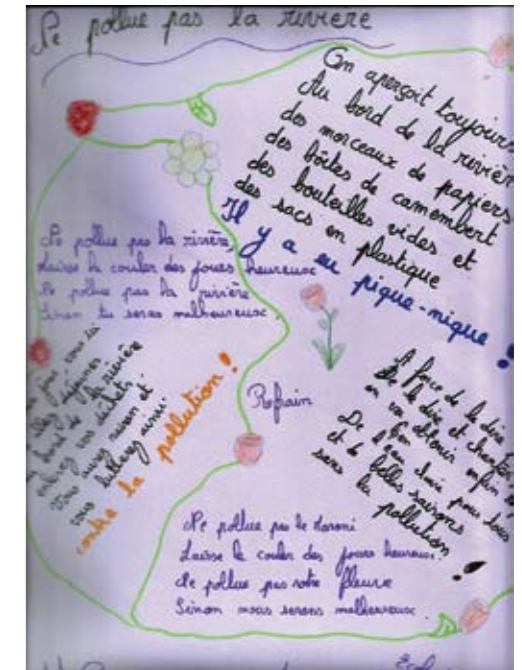 Ne pollue pas la rivière
On aperçoit toujours
Au bord de la rivière
des morceaux de papiers
des boîtes de camembert
des bouteilles vides et
des sacs en plastique
Il y a eu pique-nique !
Ne pollue pas la rivière,
Laisse la couler des jours heureux
Ne pollue pas la rivière
Sinon tu seras malheureux.
jour, vous
allez déjeuner
au bord de la rivière
vos déchets.
Vous aurez raison et
vous lutterez ainsi
contre la pollution !
Refrain
A force de le dire
de le dire et chanter
on va obtenir enfin
De l'eau pour tous
et de belles saisons
sans la pollution !
Ne pollue pas le Maroni
Laisse le couler des jours heureux.
Ne pollue pas notre fleuve
Sinon nous serons malheureux.